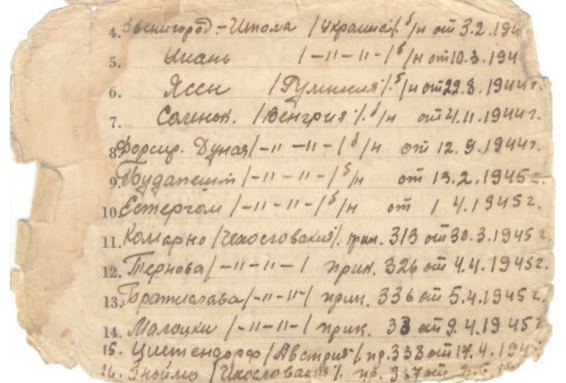 4. Звенигород.-Шпола /Украина/. б/н от 3.2.194
5. Умань /-"-"-/ б/н от 10.3.194
6. Яссы /Румыния/. б/н от 22.8.1944г.
7. Солнок. /Венгрия/. б/н от 4.11.1944г.
8. Форсир. Дуная /-"-"-/ б/н от 12.9.1944г.
9. Будапешт /-"-"-/ б/н от 13.2.1945г.
10. Естергом /-"-"-/ б/н от 1 4.1945г.
11. Комарно /Чехословакия/. прик. 313 от 30.3.1945г.
12. Тернова /-"-"-/ прик. 326 от 4.4.1945г.
13. Братислава /-"-"-/ прик. 336 от 5.4.1945г.
14. Малоцки /-"-"-/ прик. от 9.4.1945г
15. Цистендорф /Австрия/. пр. 338 от 17.4.194
16. Зноймо /Чехословакия/. пр.